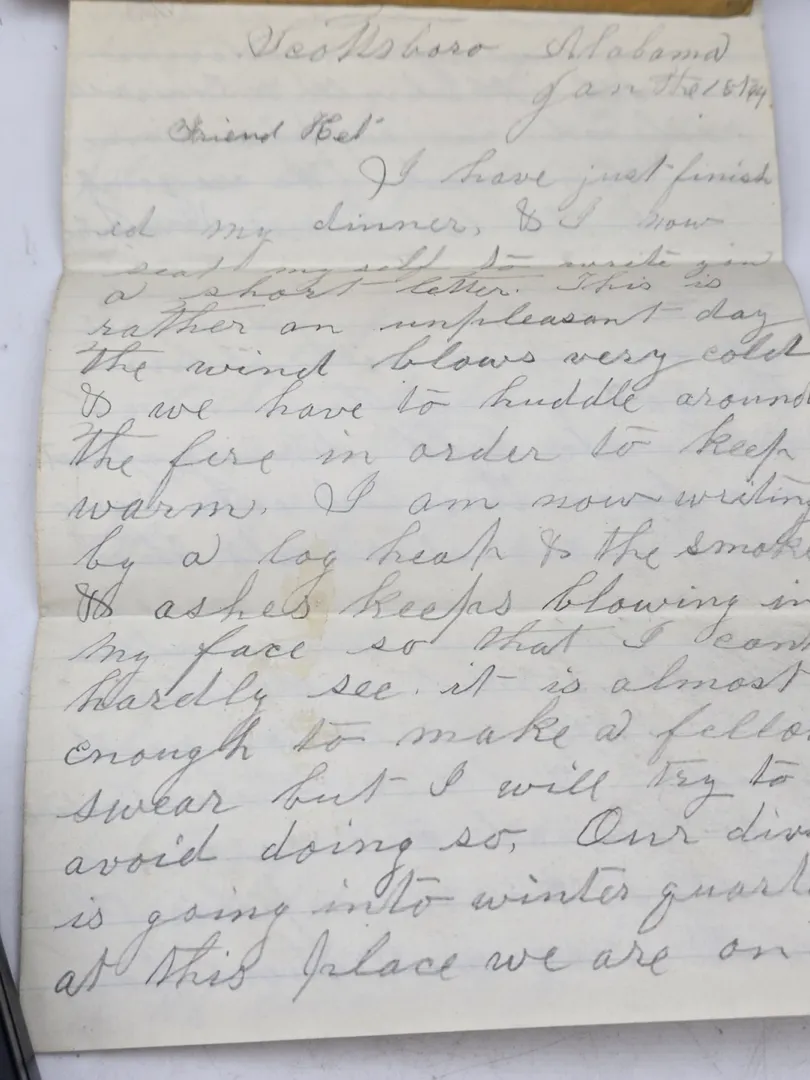 Scottsboro Alabama
Jan the 1st/64
Friend Het
I have just finish
ed my dinner, & I now
seat my self to write you
a short letter. This is
rather an unpleasant day
the wind blows very cold
& we have to huddle around
the fire in order to keep
warm. I am now writing
by a log heap & the smoke
& ashes keeps blowing in
my face so that I can
hardly see. it is almost
enough to make a fello
swear but I will try to
avoid doing so, Our div
is going into winter quart
at this place we are on